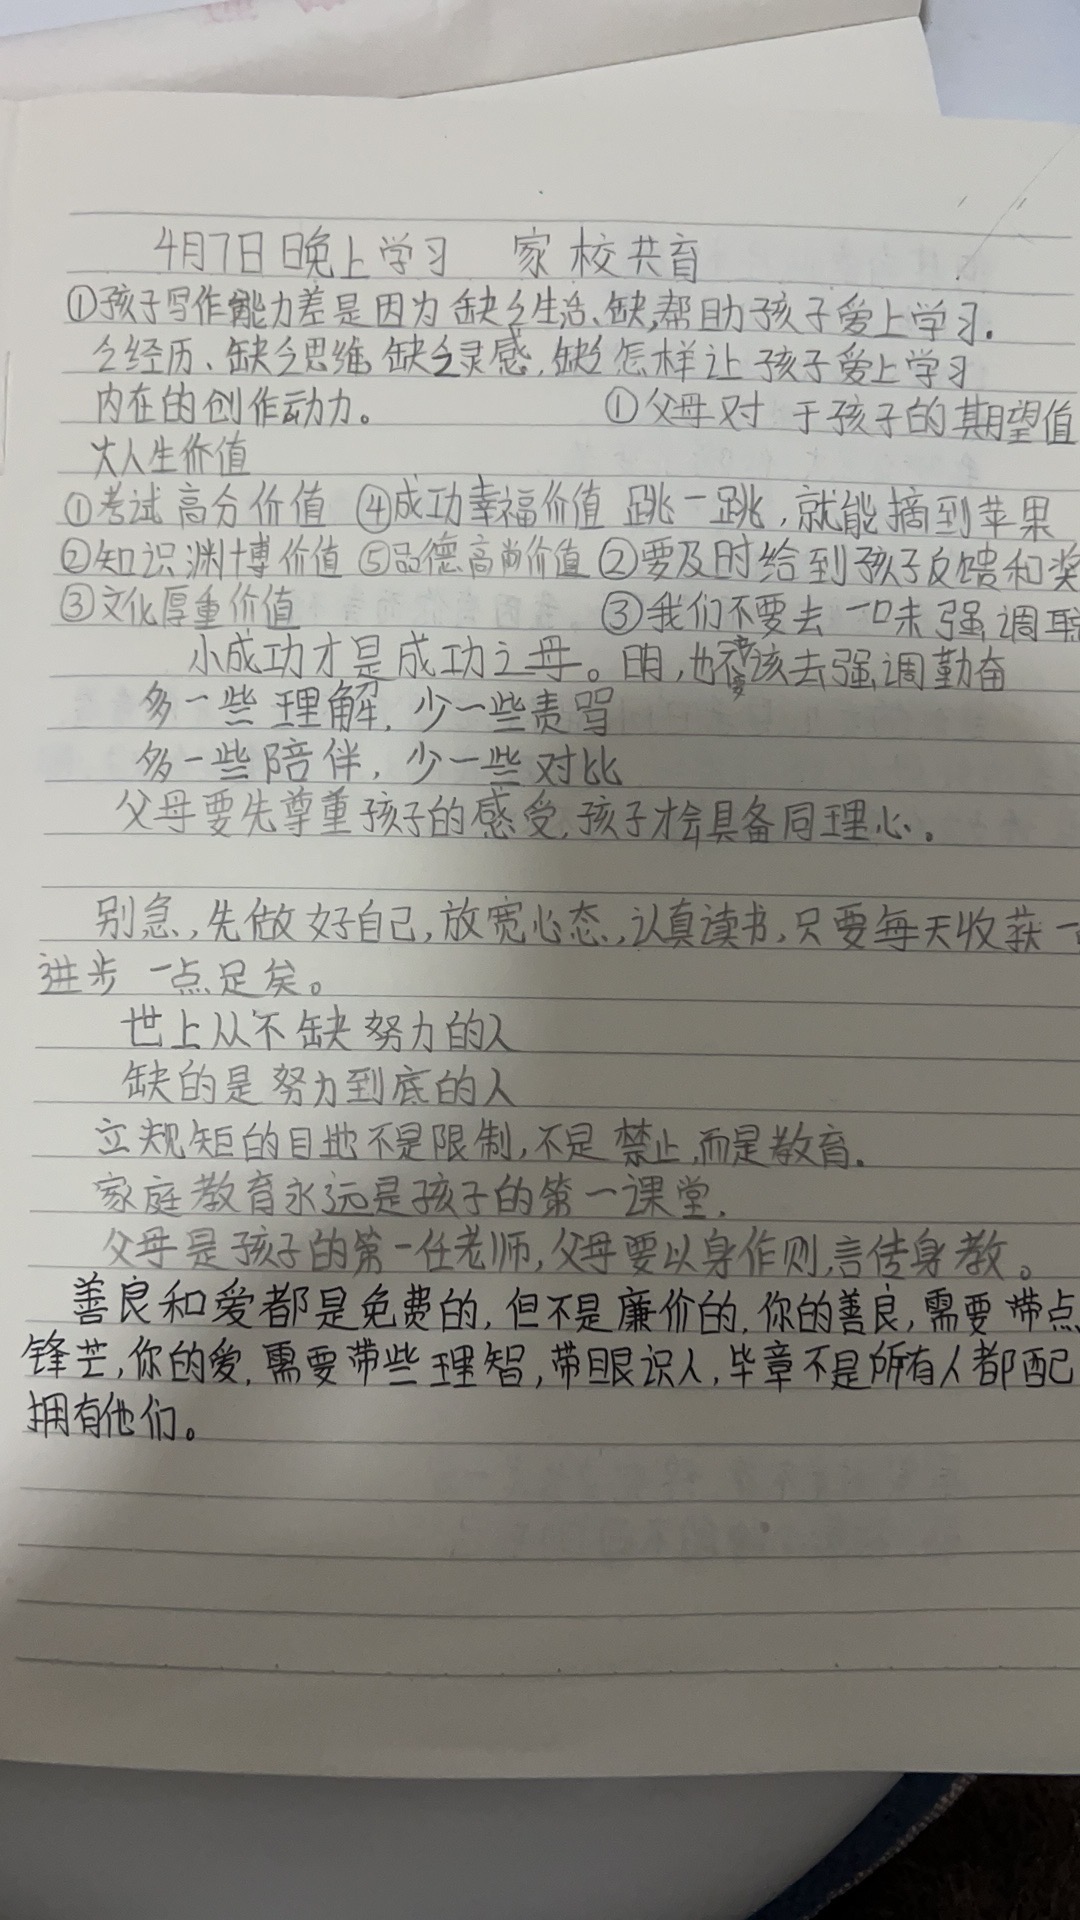 4月7日晚上学习 家校共育
①孩子写作能力差是因为缺乏生活、缺,帮助孩子爱上学习.
乏经历、缺乏思维,缺乏灵感,缺乏 怎样让孩子爱上学习
内在的创作动力。 ①父母对于孩子的期望值
人生价值
①考试高分价值 ④成功幸福价值 跳一跳,就能摘到苹果
②知识渊博价值 ⑤品德高尚价值 ②要及时给到孩子反馈和奖
③文化厚重价值 ③我们不要去一味强调聪
小成功才是成功之母。 明,也要该去强调勤奋
多一些理解,少一些责骂
多一些陪伴,少一些对比
父母要先尊重孩子的感受,孩子才会具备同理心。
别急,先做好自己,放宽心态,认真读书,只要每天收获一
进步一点足矣。
世上从不缺努力的人
缺的是努力到底的人
立规矩的目地不是限制,不是禁止,而是教育.
家庭教育永远是孩子的第一课堂.
父母是孩子的第一任老师,父母要以身作则,言传身教。
善良和爱都是免费的,但不是廉价的,你的善良,需要带点
锋芒,你的爱,需要带些理智,带眼识人,毕章不是所有人都配
拥有他们。